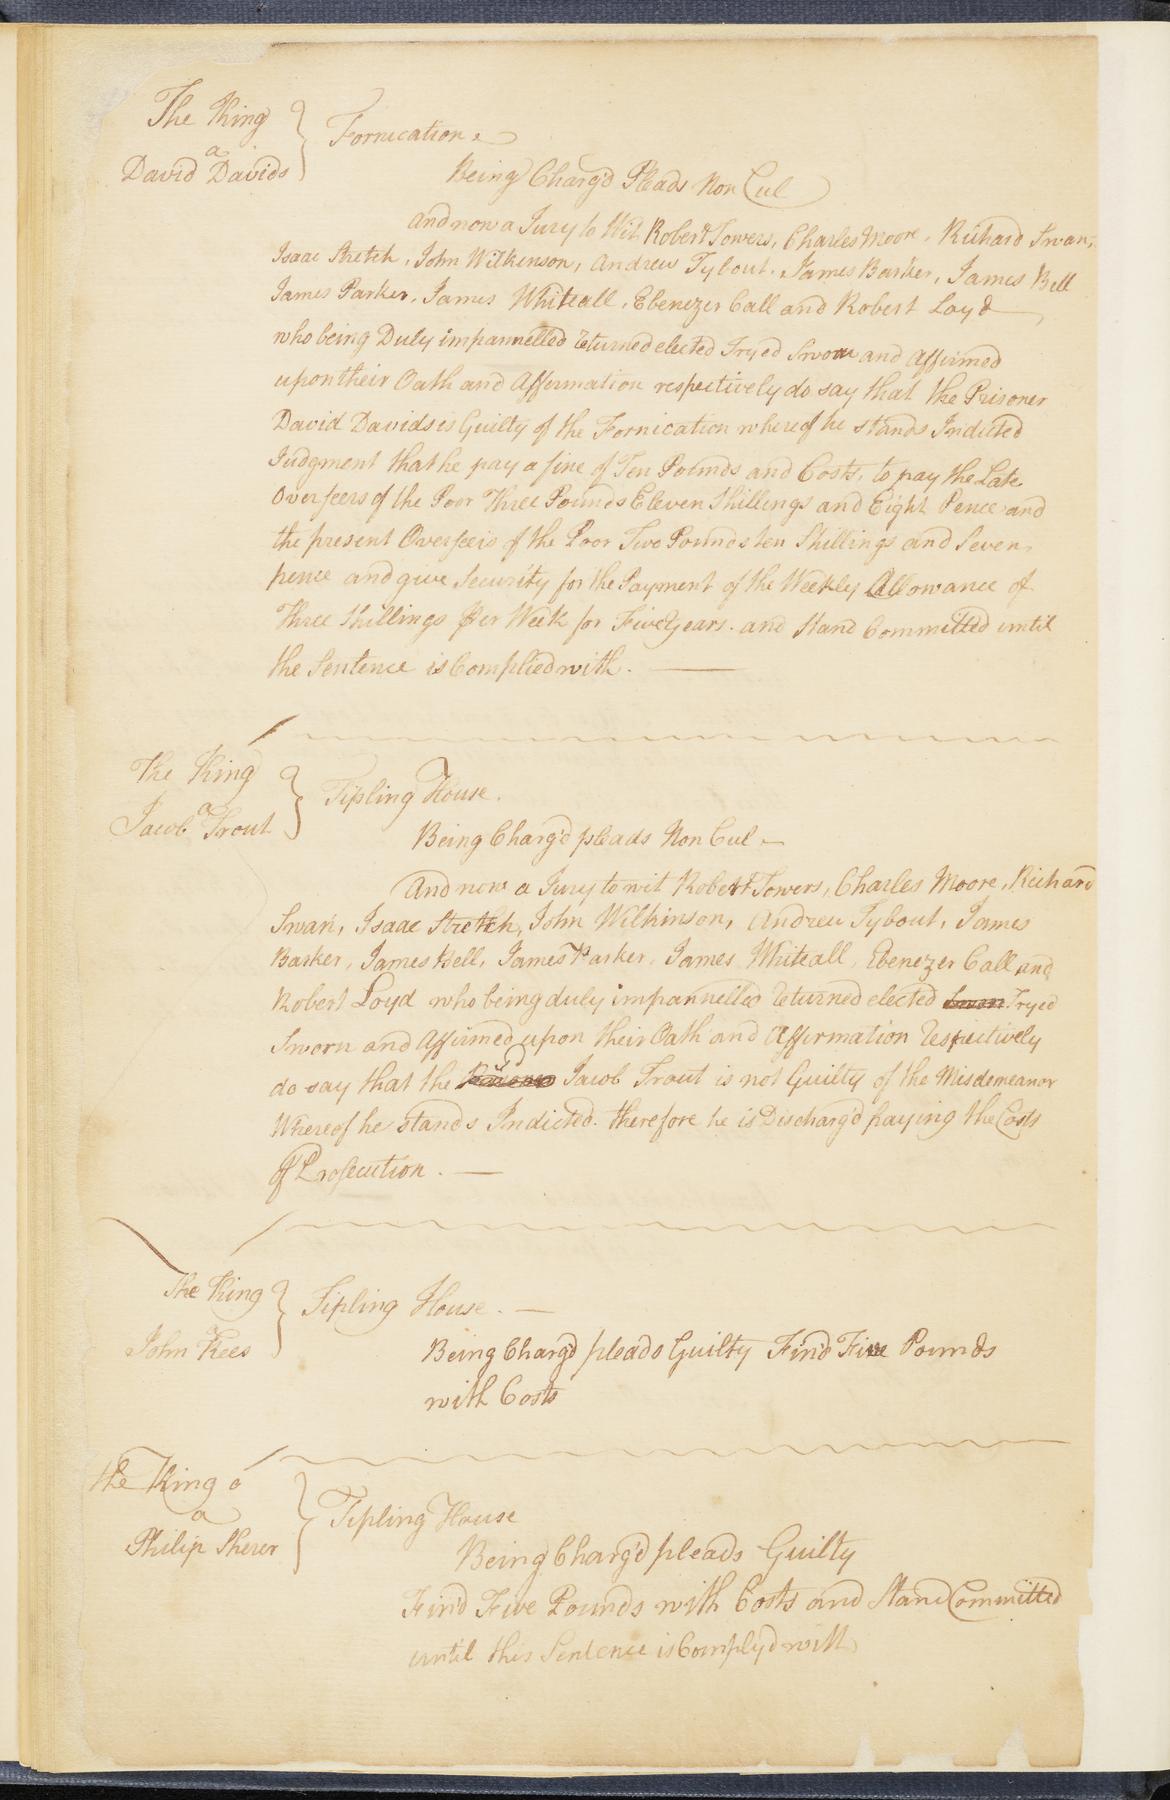 The King
a
David Davids
Fornication
Being Charg'd Pleads Non Cul
and now a Jury to Wit Robert Towers, Charles Moore, Richard Swan,
Isaac Stretch, John Wilkinson, Andrew Tybout, James Barker, James Bell
James Parker, James Whiteall, Ebenezer Call and Robert Loyd
who being Duly impannelled returned elected Tryed Sworn and Affirmed
upon their Oath and Affirmation respectively do say that the Prisoner
David Davids is Guilty of the Fornication whereof he stands Indicted
Judgment that he pay a fine of Ten Pounds and Costs, to pay the Late
Overseers of the Poor Three Pounds Eleven Shillings and Eight Pence and
the present Overseers of the Poor Two Pounds ten Shillings and Seven
pence and give Security for the Payment of the Weekly Allowance of
Three Shillings Per Week for Five Years. and Stand Committed until
the Sentence is Complied with.
The King
a
Jacob Trout
Tipling House.
Being Charg'd pleads Non Cul
And now a Jury to wit Robert Towers, Charles Moore, Richard
Swan, Isaac Stretch, John Wilkinson, Andrew Tybout, James
Barker, James Bell, James Parker, James Whiteall, Ebenezer Call and
Robert Loyd who being duly impannelled returned elected Sworn Tryed
Sworn and Affirmed upon their Oath and Affirmation respectively
do say that the Prisoner Jacob Trout is not Guilty of the Misdemeanor
Whereof he stands Indicted. therefore he is Discharg'd paying the Costs
of Prosecution.
The King
a
John Rees
Tipling House.
Being Charg'd pleads Guilty Fin'd Five Pounds
with Costs
the King
a
Philip Sherer
Tipling House
Being Charg'd pleads Guilty
Fin'd Five Pounds with Costs and Stand Committed
until this Sentence is Comply'd with